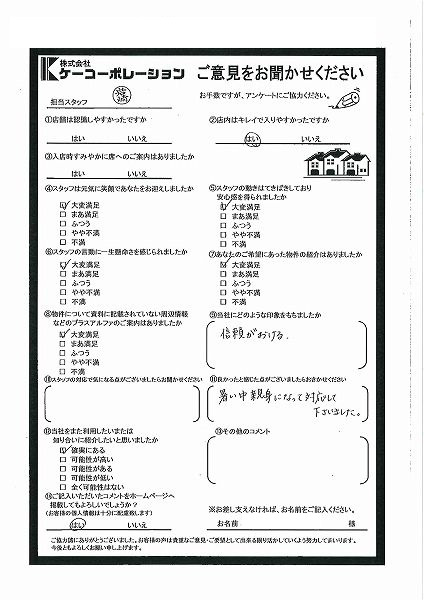 株式会社
ケーコーポレーション
ご意見をお聞かせください
お手数ですが、アンケートにご協力ください。
担当スタッフ
①店舗は認識しやすかったですか
はい　いいえ
②店内はキレイで入りやすかったですか
はい　いいえ
③入店時すみやかに席へのご案内はありましたか
はい　いいえ
④スタッフは元気に笑顔であなたをお迎えしましたか
大変満足
まあ満足
ふつう
やや不満
不満
⑤スタッフの動きはてきぱきしており
安心感を得られましたか
大変満足
まあ満足
ふつう
やや不満
不満
⑥スタッフの言動に一生懸命さを感じられましたか
大変満足
まあ満足
ふつう
やや不満
不満
⑦あなたのご希望にあった物件の紹介はありましたか
大変満足
まあ満足
ふつう
やや不満
不満
⑧物件について資料に記載されていない周辺情報
などのプラスアルファのご案内はありましたか
大変満足
まあ満足
ふつう
やや不満
不満
⑨当社にどのような印象をもちましたか
信頼がおける。
⑩スタッフの対応で気になる点がございましたらお聞かせください
⑪良かったと感じた点がございましたらおきかせください
暑い中親身になって対応して
下さいました。
⑫当社をまた利用したいまたは
知り合いに紹介したいと思いましたか
確実にある
可能性が高い
可能性がある
可能性が低い
全く可能性はない
⑬その他のコメント
⑭ご記入いただいたコメントをホームページへ
掲載してもよろしいでしょうか？
(お客様の個人情報は十分に配慮致します)
はい　いいえ
※お差し支えなければ、お名前をご記入ください。
お名前　様
ご協力誠にありがとうございました。お客様の声は貴重なご意見・ご要望として出来る限り活かしていくよう努力してまいります。
今後ともよろしくお願い申し上げます。